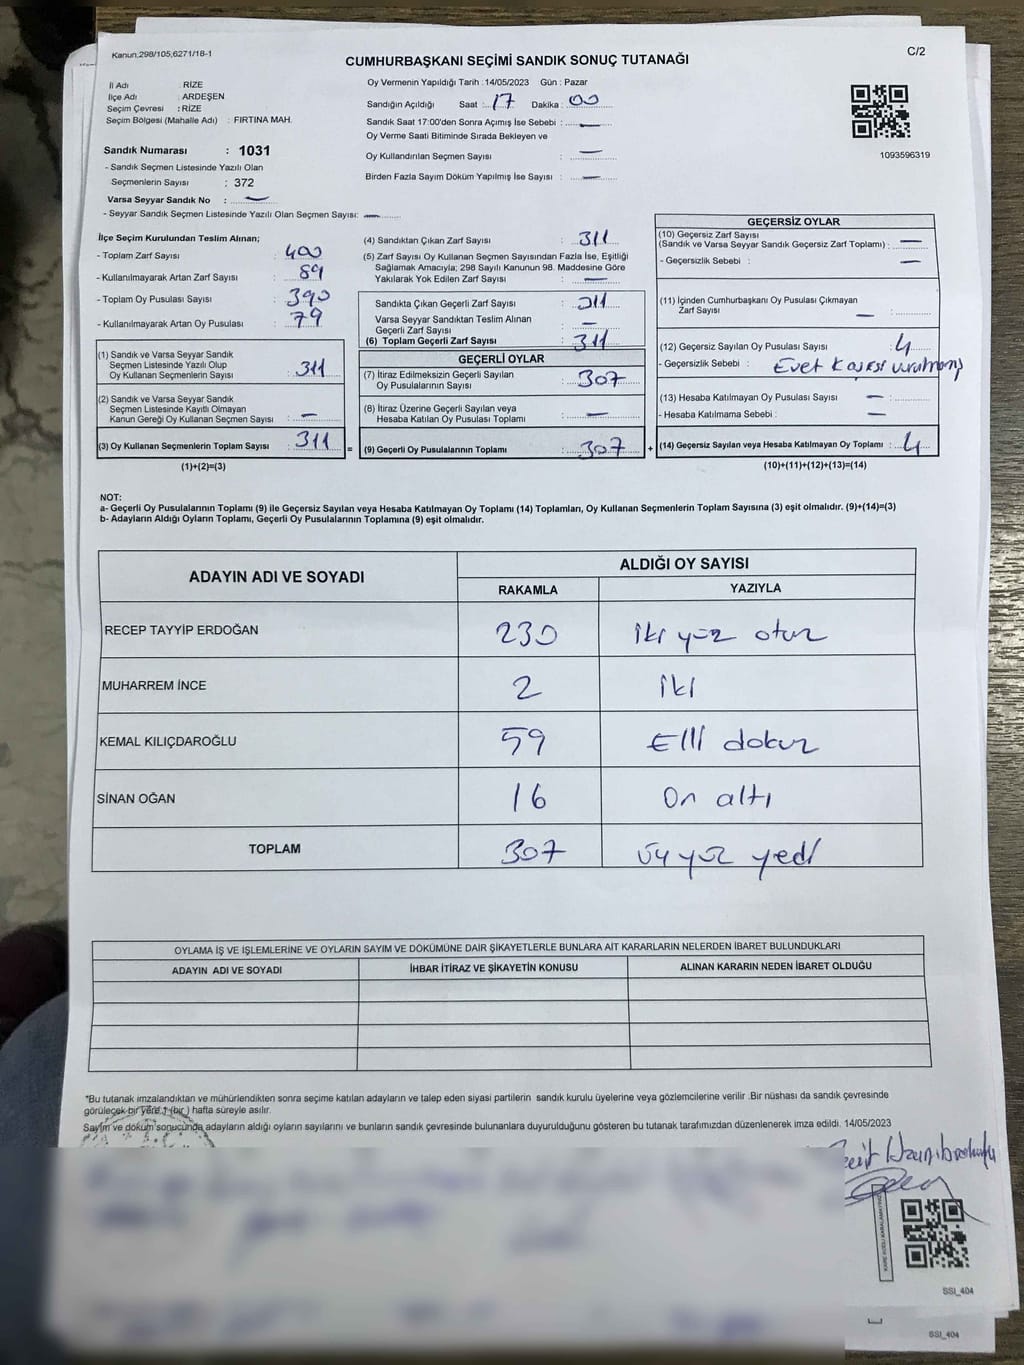 Kanun,298/105,6271/18-1
C/2
CUMHURBAŞKANI SEÇİMİ SANDIK SONUÇ TUTANAĞI
İl Adı : RİZE
İlçe Adı : ARDEŞEN
Seçim Çevresi : RİZE
Seçim Bölgesi (Mahalle Adı) : FIRTINA MAH.
Sandık Numarası : 1031
- Sandık Seçmen Listesinde Yazılı Olan
Seçmenlerin Sayısı : 372
Varsa Seyyar Sandık No : —
- Seyyar Sandık Seçmen Listesinde Yazılı Olan Seçmen Sayısı: —
Oy Vermenin Yapıldığı Tarih :14/05/2023 Gün : Pazar
Sandığın Açıldığı Saat : 17 Dakika : 00
Sandık Saat 17:00'den Sonra Açımış İse Sebebi : —
Oy Verme Saati Bitiminde Sırada Bekleyen ve
Oy Kullandırılan Seçmen Sayısı : —
Birden Fazla Sayım Döküm Yapılmış İse Sayısı : —
1093596319
İlçe Seçim Kurulundan Teslim Alınan;
- Toplam Zarf Sayısı : 400
- Kullanılmayarak Artan Zarf Sayısı : 89
- Toplam Oy Pusulası Sayısı : 390
- Kullanılmayarak Artan Oy Pusulası : 79
(1) Sandık ve Varsa Seyyar Sandık
Seçmen Listesinde Yazılı Olup
Oy Kullanan Seçmenlerin Sayısı : 311
(2) Sandık ve Varsa Seyyar Sandık
Seçmen Listesinde Kayıtlı Olmayan
Kanun Gereği Oy Kullanan Seçmen Sayısı : —
(3) Oy Kullanan Seçmenlerin Toplam Sayısı : 311
(1)+(2)=(3)
(4) Sandıktan Çıkan Zarf Sayısı : 311
(5) Zarf Sayısı Oy Kullanan Seçmen Sayısından Fazla İse, Eşitliği
Sağlamak Amacıyla; 298 Sayılı Kanunun 98. Maddesine Göre
Yakılarak Yok Edilen Zarf Sayısı : —
Sandıkta Çıkan Geçerli Zarf Sayısı : 311
Varsa Seyyar Sandıktan Teslim Alınan
Geçerli Zarf Sayısı : —
(6) Toplam Geçerli Zarf Sayısı : 311
GEÇERLİ OYLAR
(7) İtiraz Edilmeksizin Geçerli Sayılan
Oy Pusulalarının Sayısı : 307
(8) İtiraz Üzerine Geçerli Sayılan veya
Hesaba Katılan Oy Pusulası Toplamı : —
= (9) Geçerli Oy Pusulalarının Toplamı : 307 +
GEÇERSİZ OYLAR
(10) Geçersiz Zarf Sayısı
(Sandık ve Varsa Seyyar Sandık Geçersiz Zarf Toplamı) : —
- Geçersizlik Sebebi : —
(11) İçinden Cumhurbaşkanı Oy Pusulası Çıkmayan
Zarf Sayısı — :
(12) Geçersiz Sayılan Oy Pusulası Sayısı : 4
- Geçersizlik Sebebi : Evet Kaşesi vurulmamış
(13) Hesaba Katılmayan Oy Pusulası Sayısı — :
- Hesaba Katılmama Sebebi : —
(14) Geçersiz Sayılan veya Hesaba Katılmayan Oy Toplamı : 4
(10)+(11)+(12)+(13)=(14)
NOT:
a- Geçerli Oy Pusulalarının Toplamı (9) ile Geçersiz Sayılan veya Hesaba Katılmayan Oy Toplamı (14) Toplamları, Oy Kullanan Seçmenlerin Toplam Sayısına (3) eşit olmalıdır. (9)+(14)=(3)
b- Adayların Aldığı Oyların Toplamı, Geçerli Oy Pusulalarının Toplamına (9) eşit olmalıdır.
ADAYIN ADI VE SOYADI
ALDIĞI OY SAYISI
RAKAMLA YAZIYLA
RECEP TAYYİP ERDOĞAN 230 iki yüz otuz
MUHARREM İNCE 2 iki
KEMAL KILIÇDAROĞLU 59 Elli dokuz
SİNAN OĞAN 16 On altı
TOPLAM 307 üç yüz yedi
OYLAMA İŞ VE İŞLEMLERİNE VE OYLARIN SAYIM VE DÖKÜMÜNE DAİR ŞİKAYETLERLE BUNLARA AİT KARARLARIN NELERDEN İBARET BULUNDUKLARI
ADAYIN ADI VE SOYADI İHBAR İTİRAZ VE ŞİKAYETİN KONUSU ALINAN KARARIN NEDEN İBARET OLDUĞU
*Bu tutanak imzalandıktan ve mühürlendikten sonra seçime katılan adayların ve talep eden siyasi partilerin sandık kurulu üyelerine veya gözlemcilerine verilir .Bir nüshası da sandık çevresinde
görülecek bir yere 1 (bir ) hafta süreyle asılır.
Sayım ve döküm sonucunda adayların aldığı oyların sayılarını ve bunların sandık çevresinde bulunanlara duyurulduğunu gösteren bu tutanak tarafımızdan düzenlenerek imza edildi. 14/05/2023
SSI_404
SSI_404